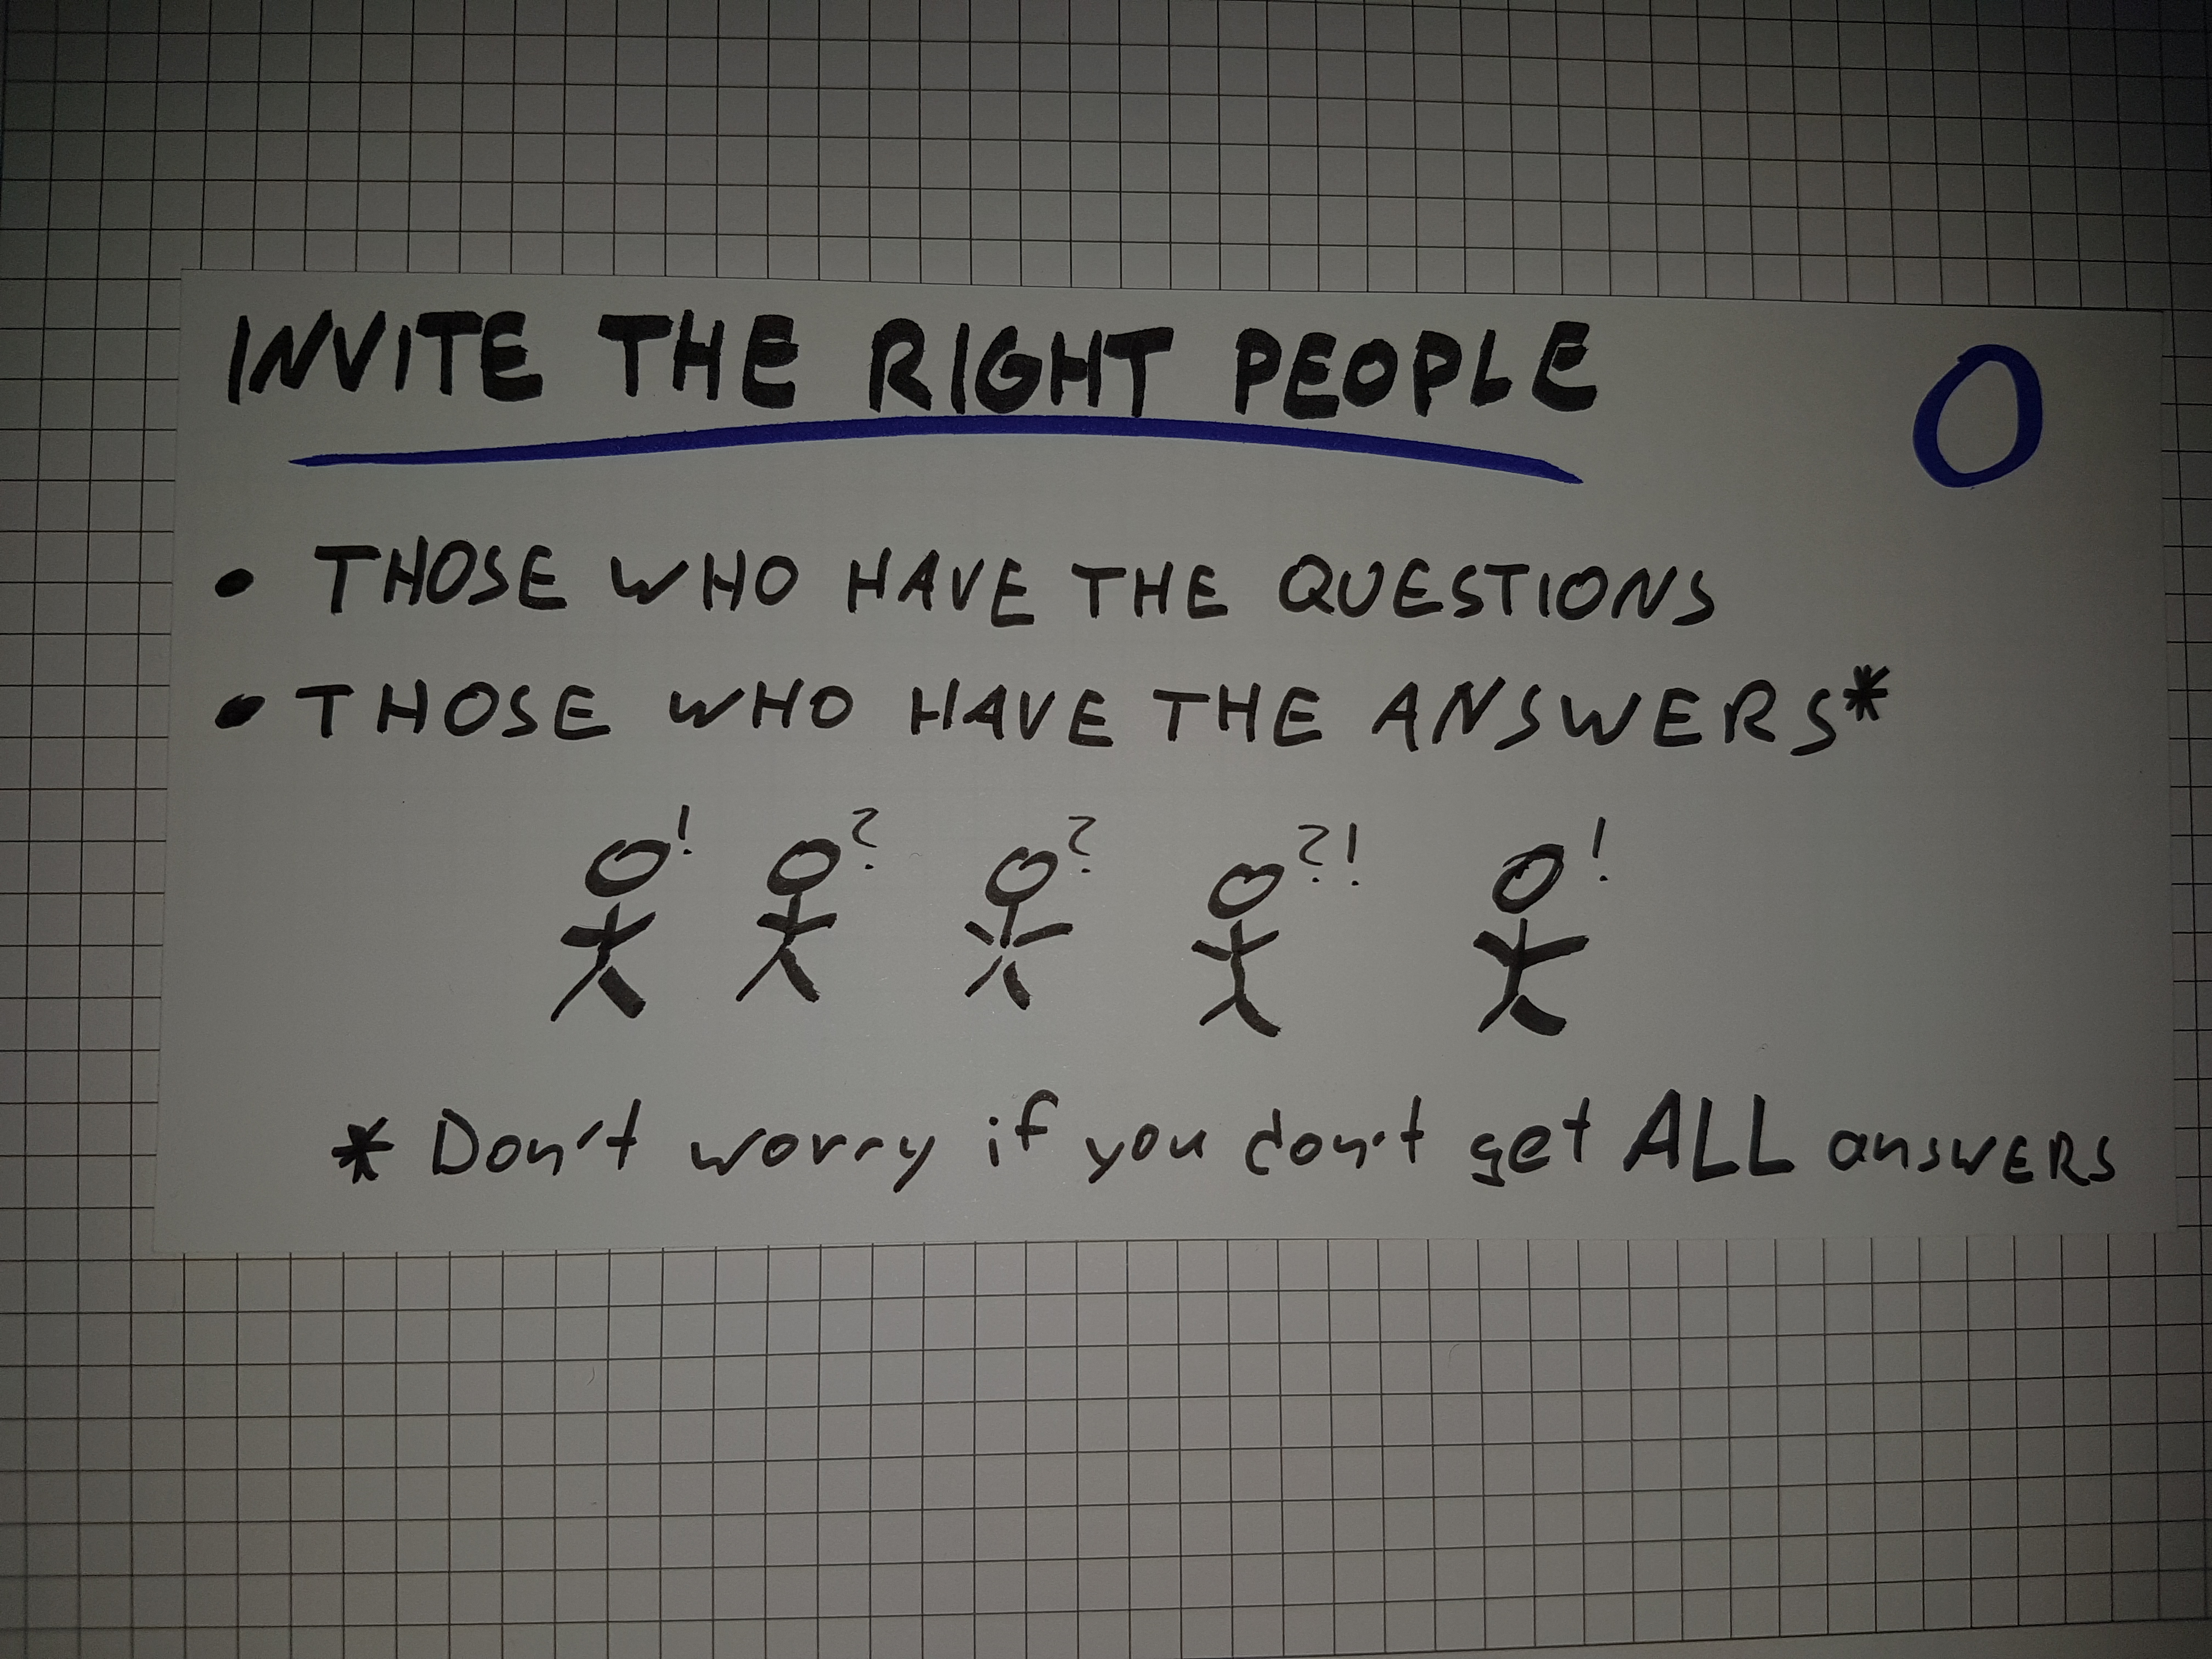 INVITE THE RIGHT PEOPLE 0
• THOSE WHO HAVE THE QUESTIONS
• THOSE WHO HAVE THE ANSWERS*
! ? ? ?! !
* Don't worry if you don't get ALL answERS